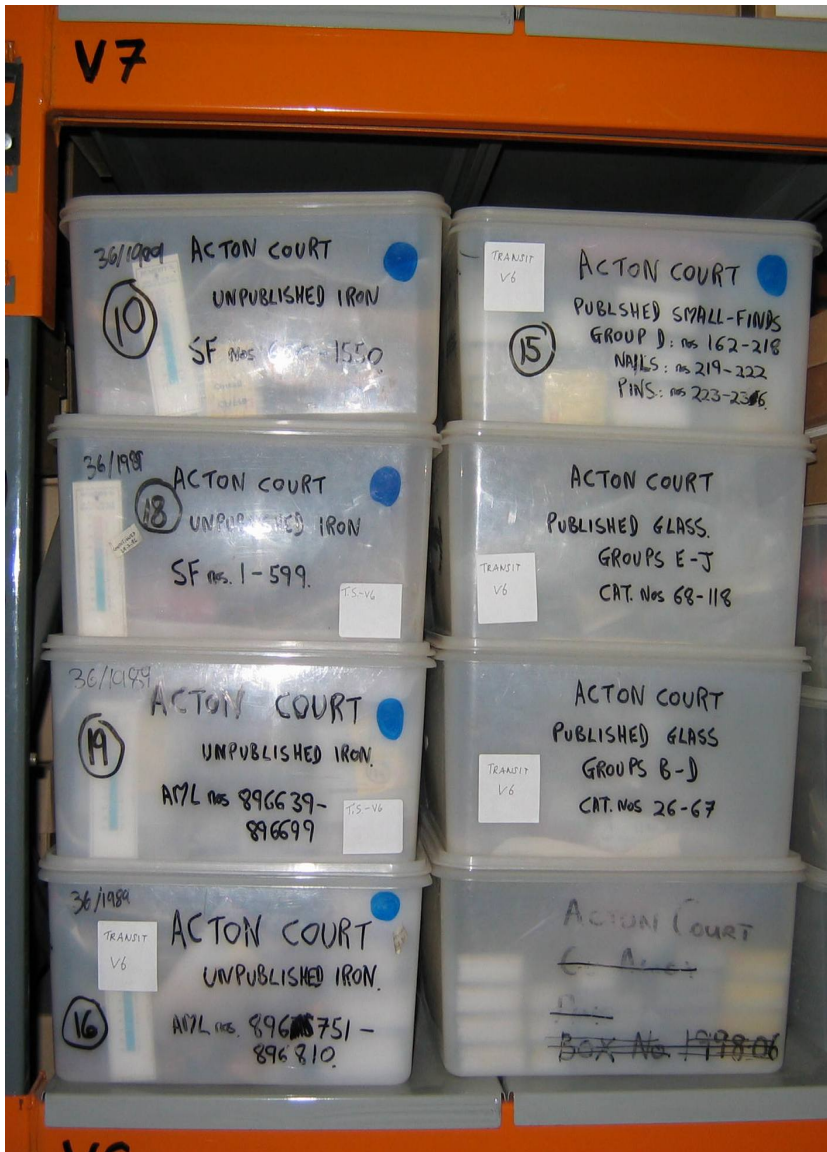 V7
36/1989
ACTON COURT
UNPUBLISHED IRON
10
SF Nos 1550
TRANSIT
V6
ACTON COURT
PUBLSHED SMALL-FINDS
GROUP D: nos 162-218
NAILS: nos 219-222
PINS: nos 223-236
15
36/1989
18
ACTON COURT
UNPUBLISHED IRON
SF nos. 1-599.
T.S-V6
ACTON COURT
PUBLISHED GLASS.
GROUPS E-J
CAT. Nos 68-118
TRANSIT
V6
36/1989
ACTON COURT
19
UNPUBLISHED IRON.
AML nos 896639-
896699
T.S-V6
ACTON COURT
PUBLISHED GLASS
GROUPS B-D
CAT. Nos 26-67
TRANSIT
V6
36/1989
TRANSIT
V6
ACTON COURT
UNPUBLISHED IRON.
16
AML nos. 896751-
896810
ACTON COURT
BOX No 199806